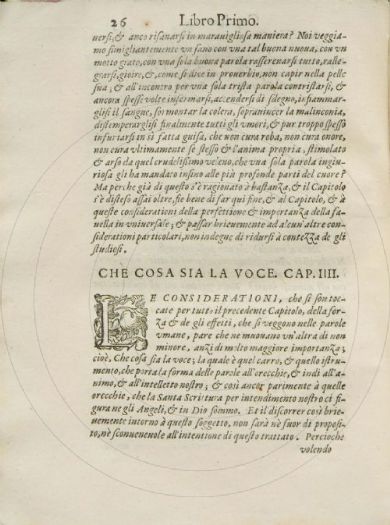 26 Libro Primo.
uersi, & anco risanarsi in marauigliosa maniera? Noi veggia-
mo simigliantemente vn sano con vna tal buona nuoua, con vn
motto grato, con vna sola buona parola rasserenarsi tutto, ralle-
grarsi, gioire, &, come si dice in prouerbio, non capir nella pelle
sua; & all'incontro per vna sola trista parola contristarsi, &
ancora spesse volte infermarsi, accendersi di sdegno, infiammar-
glisi il sangue, sormontar la colera, soprauincer la malinconia,
distemperarglisi finalmente tutti gli umori, & pur troppo spesso
infuriarsi in sì fatta guisa, che non cura roba, non cura onore,
non cura vltimamente se stesso & l'anima propria, stimolato
& arso da quel crudelissimo veleno, che vna sola parola ingiu-
riosa gli ha mandato insino alle più profonde parti del cuore?
Ma perche già di questo s'è ragionato à bastanza, & il Capitolo
s'è disteso assai oltre, fie bene di far qui fine, & al Capitolo, & à
queste considerationi della perfettione & importanza della fa-
uella in vniuersale; & passar brieuemente ad alcun'altre con-
siderationi particolari, non indegne di ridursi à contezza de gli
studiosi.
CHE COSA SIA LA VOCE. CAP. IIII.
LE CONSIDERATIONI, che si son toc-
cate per tutto il precedente Capitolo, della for-
za & de gli effetti, che si veggono nelle parole
vmane, pare che ne muouano vn'altra di non
minore, anzi di molto maggiore importanza;
cioè, Che cosa sia la voce; la quale è quel carro, & quello istru-
mento, che porta la forma delle parole all'orecchie, & indi all'a-
nimo, & all'intelletto nostro; & così ancor parimente à quelle
orecchie, che la Santa Scrittura per intendimento nostro ci fi-
gura ne gli Angeli, & in Dio sommo. Et il discorrer così brie-
uemente intorno à questo soggetto, non sarà nè fuor di proposi-
to, nè sconueneuole all'intentione di questo trattato. Percioche
volendo